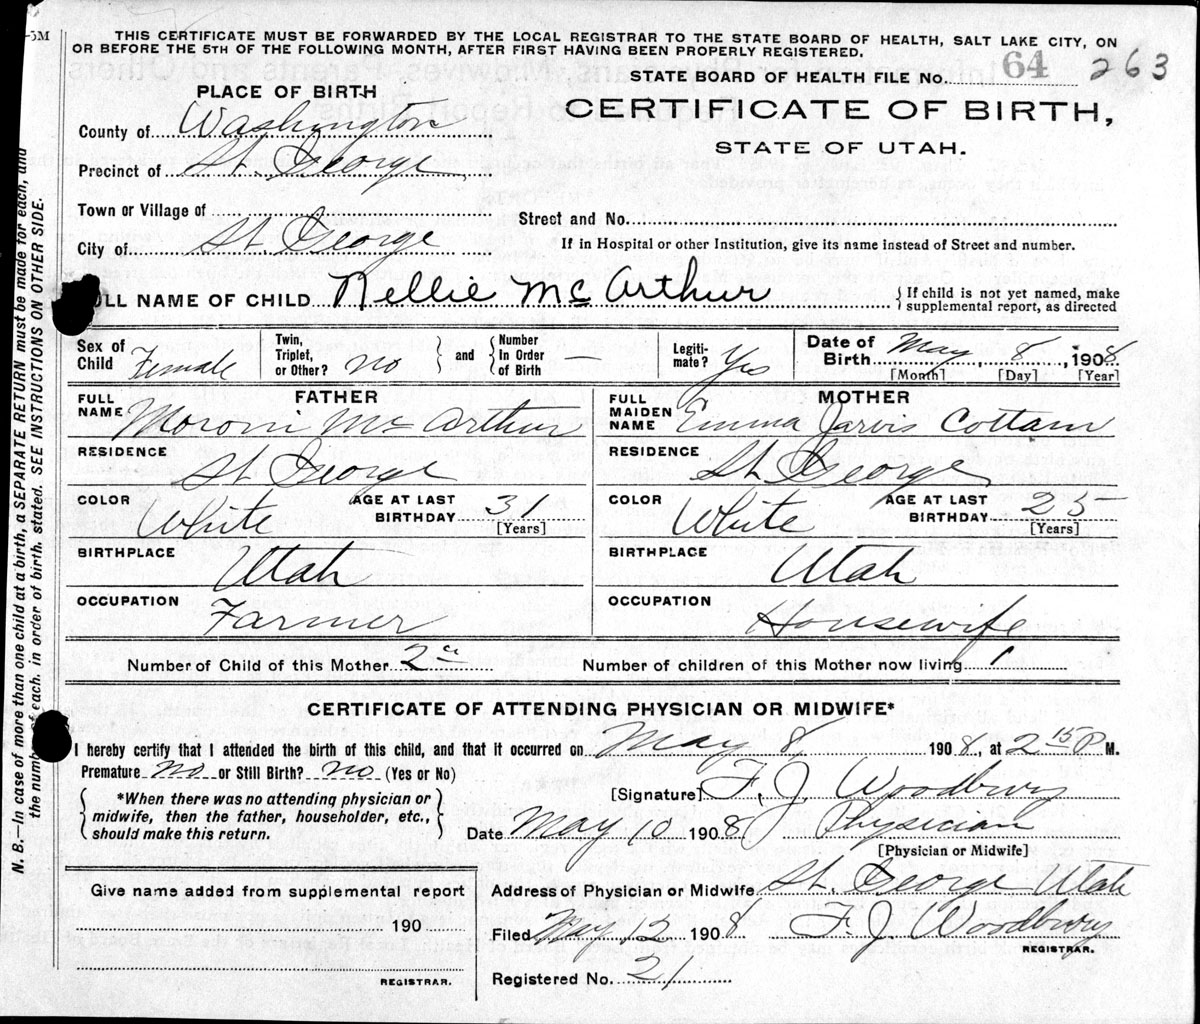 -5M
THIS CERTIFICATE MUST BE FORWARDED BY THE LOCAL REGISTRAR TO THE STATE BOARD OF HEALTH, SALT LAKE CITY, ON
OR BEFORE THE 5TH OF THE FOLLOWING MONTH, AFTER FIRST HAVING BEEN PROPERLY REGISTERED.
STATE BOARD OF HEALTH FILE No. 64 263
PLACE OF BIRTH
CERTIFICATE OF BIRTH,
STATE OF UTAH.
County of Washington
Precinct of St. George
Town or Village of
Street and No.
City of St George
If in Hospital or other Institution, give its name instead of Street and number.
ULL NAME OF CHILD Nellie McArthur { If child is not yet named, make supplemental report, as directed
Sex of Child Female Twin, Triplet, or Other? no } and { Number In Order of Birth — Legiti-mate? Yes Date of Birth May 8, 1908
[Month] [Day] [Year]
FATHER
MOTHER
FULL NAME Moroni McArthur
FULL MAIDEN NAME Emma Jarvis Cottam
RESIDENCE St George
RESIDENCE St George
COLOR White AGE AT LAST BIRTHDAY 31 [Years]
COLOR White AGE AT LAST BIRTHDAY 25 [Years]
BIRTHPLACE Utah
BIRTHPLACE Utah
OCCUPATION Farmer
OCCUPATION Housewife
Number of Child of this Mother 2
Number of children of this Mother now living 1
CERTIFICATE OF ATTENDING PHYSICIAN OR MIDWIFE*
I hereby certify that I attended the birth of this child, and that it occurred on May 8, 1908, at 2 15 P M.
Premature no or Still Birth? no (Yes or No)
[Signature] F. J. Woodbury
{ *When there was no attending physician or midwife, then the father, householder, etc., should make this return. }
Date May 10 1908 Physician
[Physician or Midwife]
Give name added from supplemental report
190
REGISTRAR.
Address of Physician or Midwife St. George Utah
Filed May 12 1908 F. J. Woodbury
REGISTRAR.
Registered No. 21
N. B.—In case of more than one child at a birth, a SEPARATE RETURN must be made for each, and
the number of each, in order of birth, stated. SEE INSTRUCTIONS ON OTHER SIDE.